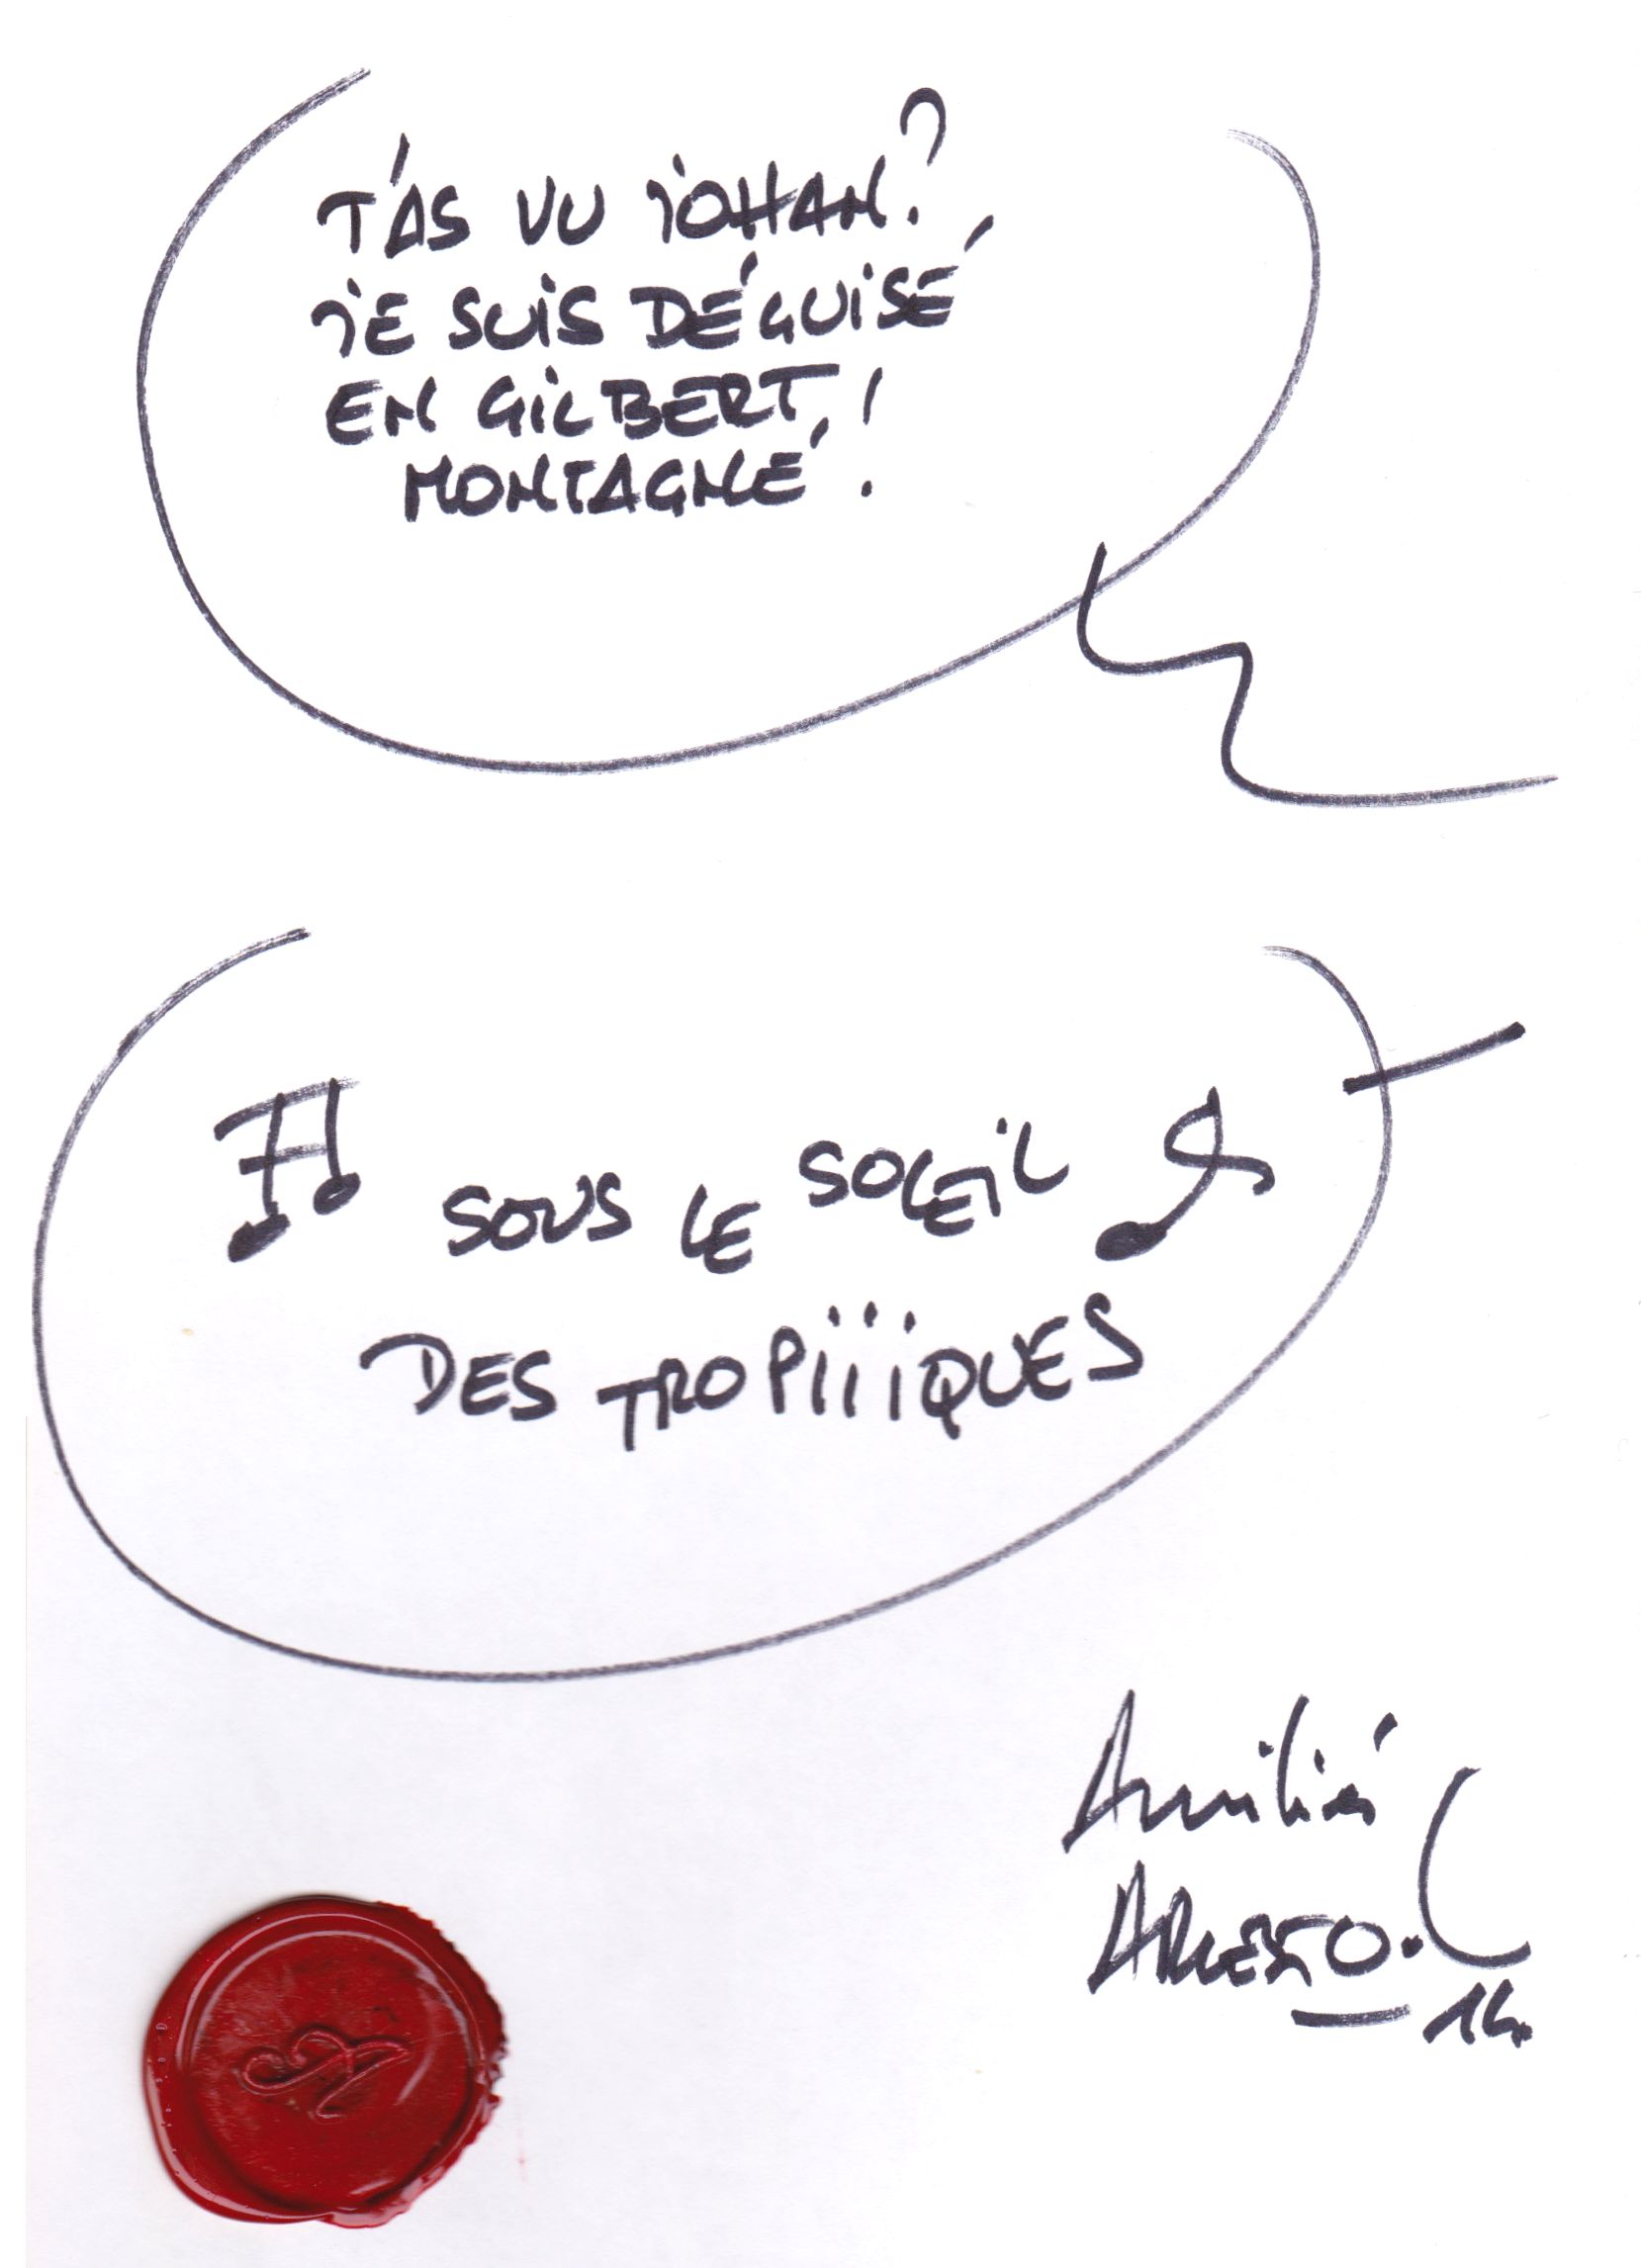 T'AS VU JOHAN?
JE SUIS DÉGUISÉ
EN GILBERT
MONTAGNÉ!
SOUS LE SOLEIL
DES TROPIIIIQUES
Amitiés
14